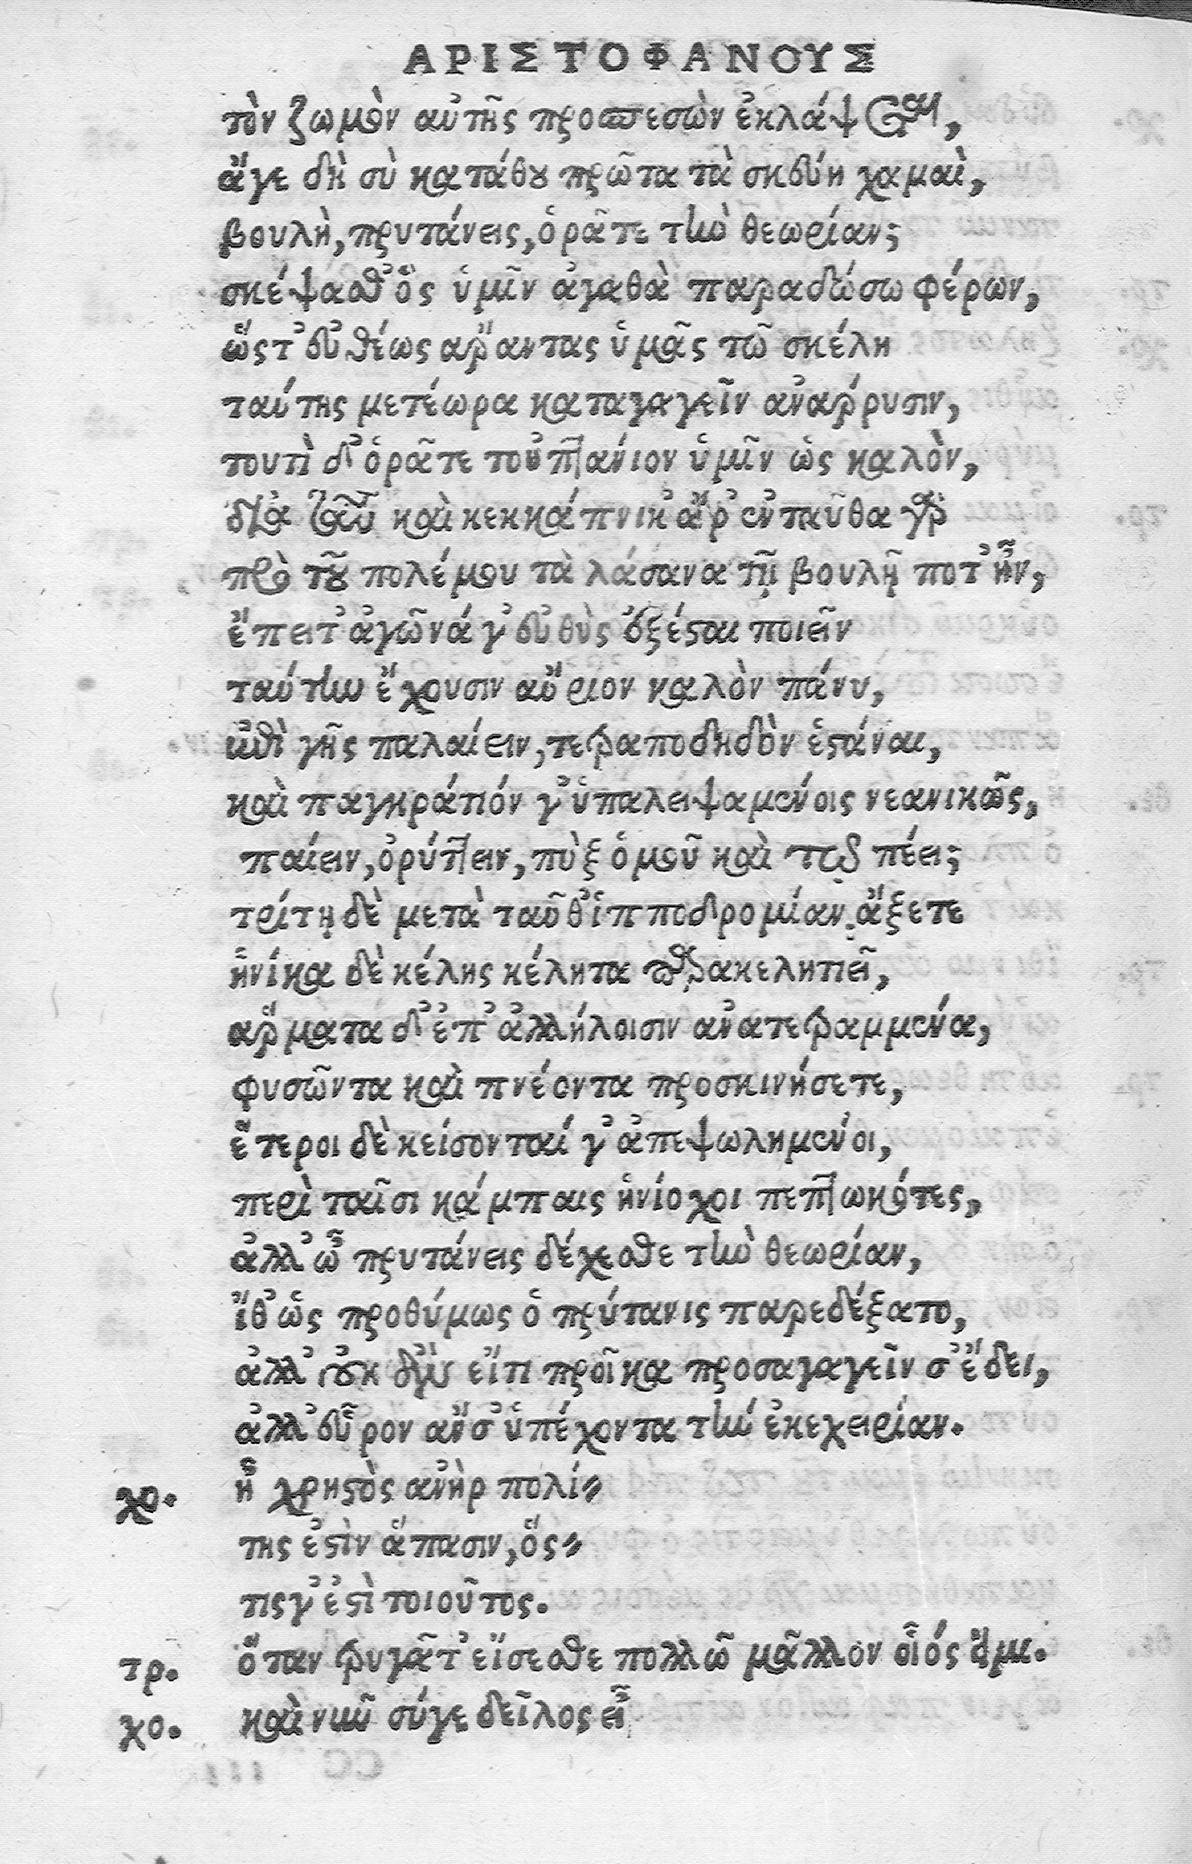 ΑΡΙΣΤΟΦΑΝΟΥΣ
τὸν ζωμὸν αὐτῆς προσπεσὼν ἐκλάψεται,
ἄγε δὴ σὺ κατάθου πρῶτα τὰ σκεύη χαμαὶ,
βουλὴ, πρυτάνεις, ὁρᾶτε τὴν θεωρίαν;
σκέψασθ᾽ ὅς ὑμῖν ἀγαθὰ παραδώσω φέρων,
ὥςτ᾽ εὐθέως ἄραντας ὑμᾶς τὼ σκέλη
ταύτης μετέωρα καταγαγεῖν ἀνάρρυσιν,
τουτὶ δ᾽ ὁρᾶτε τοὐπτάνιον ὑμῖν ὡς καλὸν,
διὰ ταῦτα καὶ κεκάπνικ᾽ ἄρ᾽ ἐνταῦθα γὰρ
πρὸ τοῦ πολέμου τὰ λάσανα τῇ βουλῇ ποτ᾽ ἦν,
ἔπειτ᾽ ἀγῶνά γ᾽ εὐθὺς ἐξέσται ποιεῖν
ταύτην ἔχουσιν αὔριον καλὸν πάνυ,
ἐπὶ γῆς παλαίειν, τετραποδηδὸν ἑστάναι,
καὶ παγκράτιόν γ᾽ ὑπαλειψαμένοις νεανικῶς,
παίειν, ὀρύττειν, πὺξ ὁμοῦ καὶ τῷ πέει;
τρίτῃ δὲ μετὰ ταῦθ᾽ ἱπποδρομίαν ἄξετε
ἡνίκα δὲ κέλης κέλητα παρακελητιεῖ,
ἅρματα δ᾽ ἐπ᾽ ἀλλήλοισιν ἀνατετραμμένα,
φυσῶντα καὶ πνέοντα προσκινήσετε,
ἕτεροι δὲ κείσονταί γ᾽ ἀπεψωλημένοι,
περὶ ταῖσι κάμπαις ἡνίοχοι πεπτωκότες,
ἀλλ᾽ ὦ πρυτάνεις δέχεσθε τὴν θεωρίαν,
ἴθ᾽ ὡς προθύμως ὁ πρύτανις παρεδέξατο,
ἀλλ᾽ οὐκ ἂν εἴτι προῖκα προσαγαγεῖν σ᾽ ἔδει,
ἀλλ᾽ εὗρον ἄν σ᾽ ὑπέχοντα τὴν ἐκεχειρίαν.
χο. ἦ χρηστὸς ἀνὴρ πολί-
της ἐστὶν ἅπασιν, ὅς-
τις γ᾽ ἐστὶ τοιοῦτος.
τρ. ὅταν τρυγᾶτ᾽ εἴσεσθε πολλῶ μᾶλλον οἷός εἰμι.
χο. καὶ νῦν σύγε δεῖλος εἶ